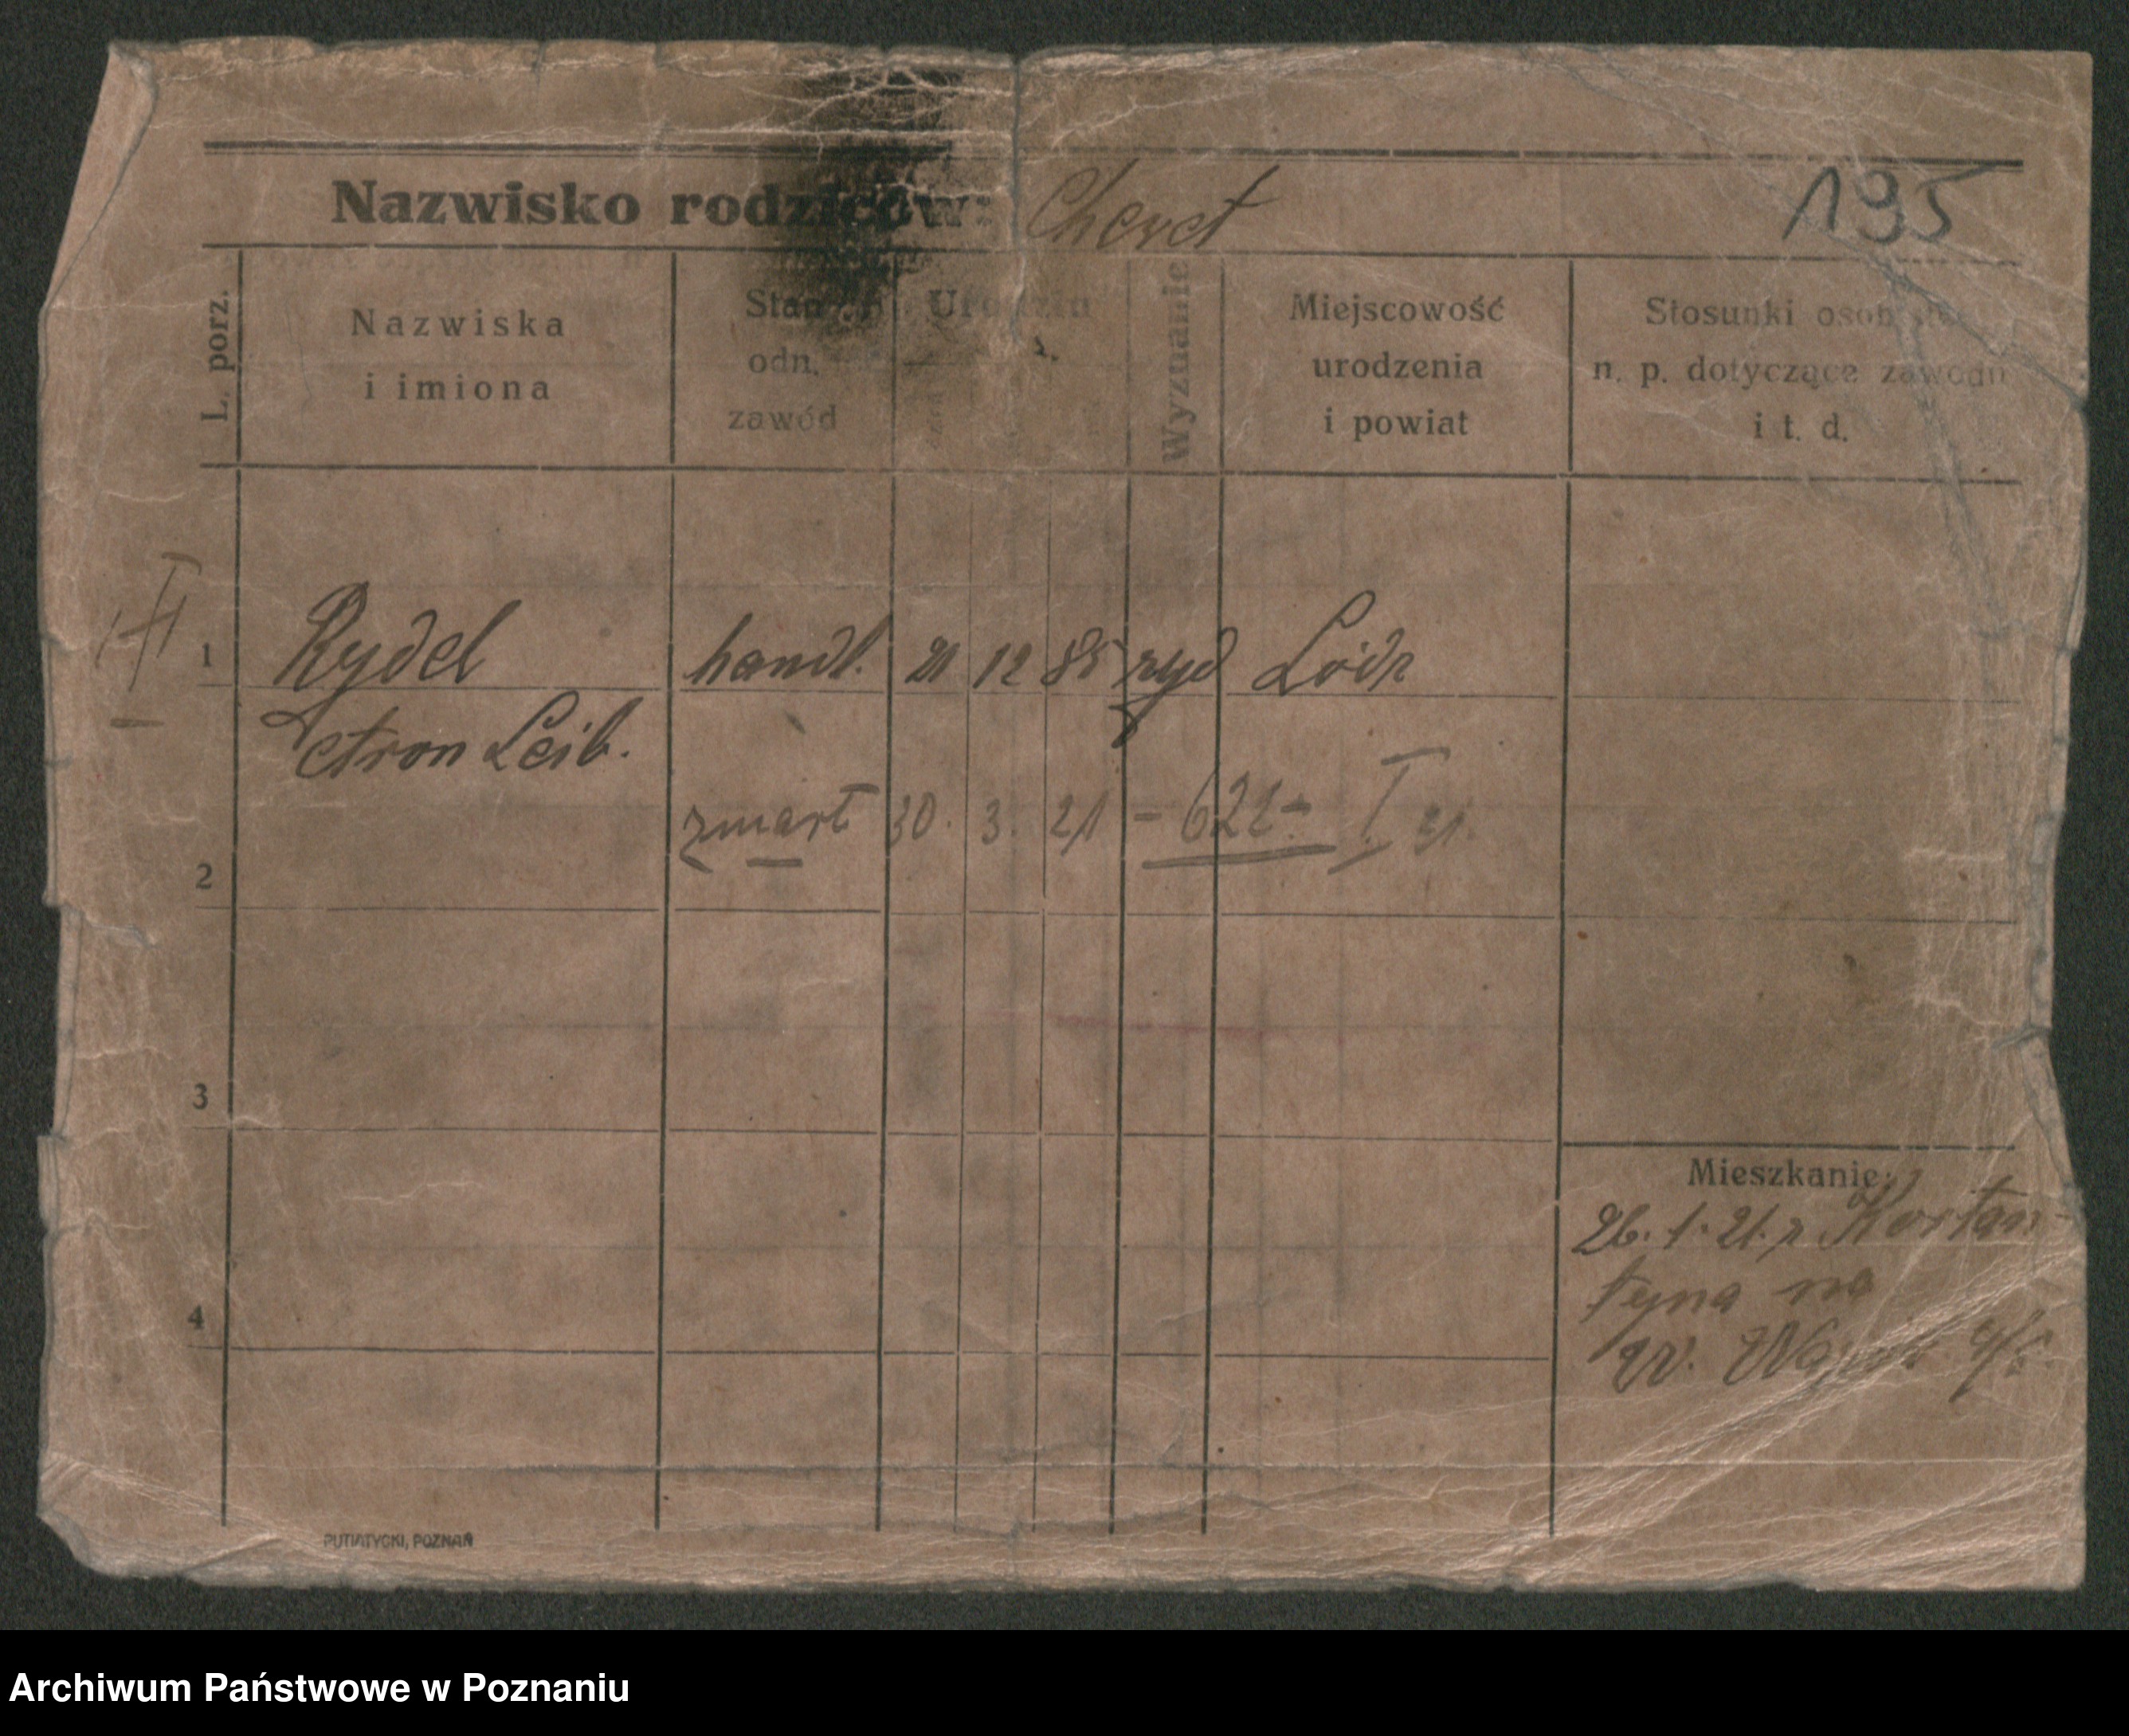 Nazwisko rodziców: 195
L. porz.
Nazwiska
i imiona
Stan
odn.
zawód
Urodziu
Wyznanie
Miejscowość
urodzenia
i powiat
Stosunki osob
n. p. dotyczące zawodu
i t. d.
1 Rydel handl. 21 12 85 żyd Łódź
Leib.
zmarł 30. 3. 21 - 621- I 21.
2
3
4
Mieszkanie:
26. 1. 21. z Kostan-
tyna na
W.
PUTIATYCKI, POZNAŃ
Archiwum Państwowe w Poznaniu